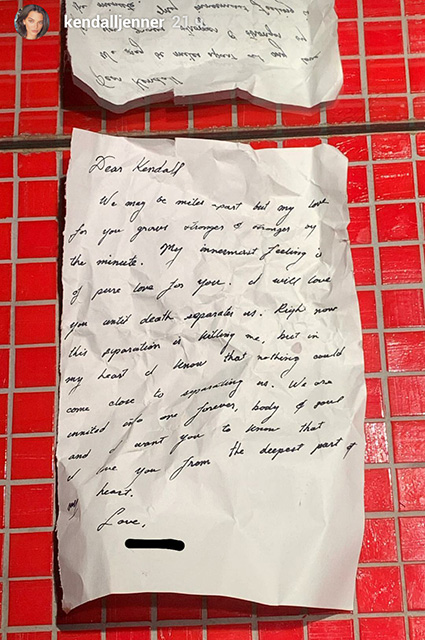 kendalljenner 21 u
Dear Kendall
We may be miles -part but my love
for you grows stronger & stronger by
the minute. My innermost feeling is
of pure love for you. I will love
you until death separates us. Righ now
this separation is killing me, but in
my heart I know that nothing could
come close to separating us. We are
united into one forever, body & soul
and I want you to know that
I love you from the deepest part of
my heart.
Love,